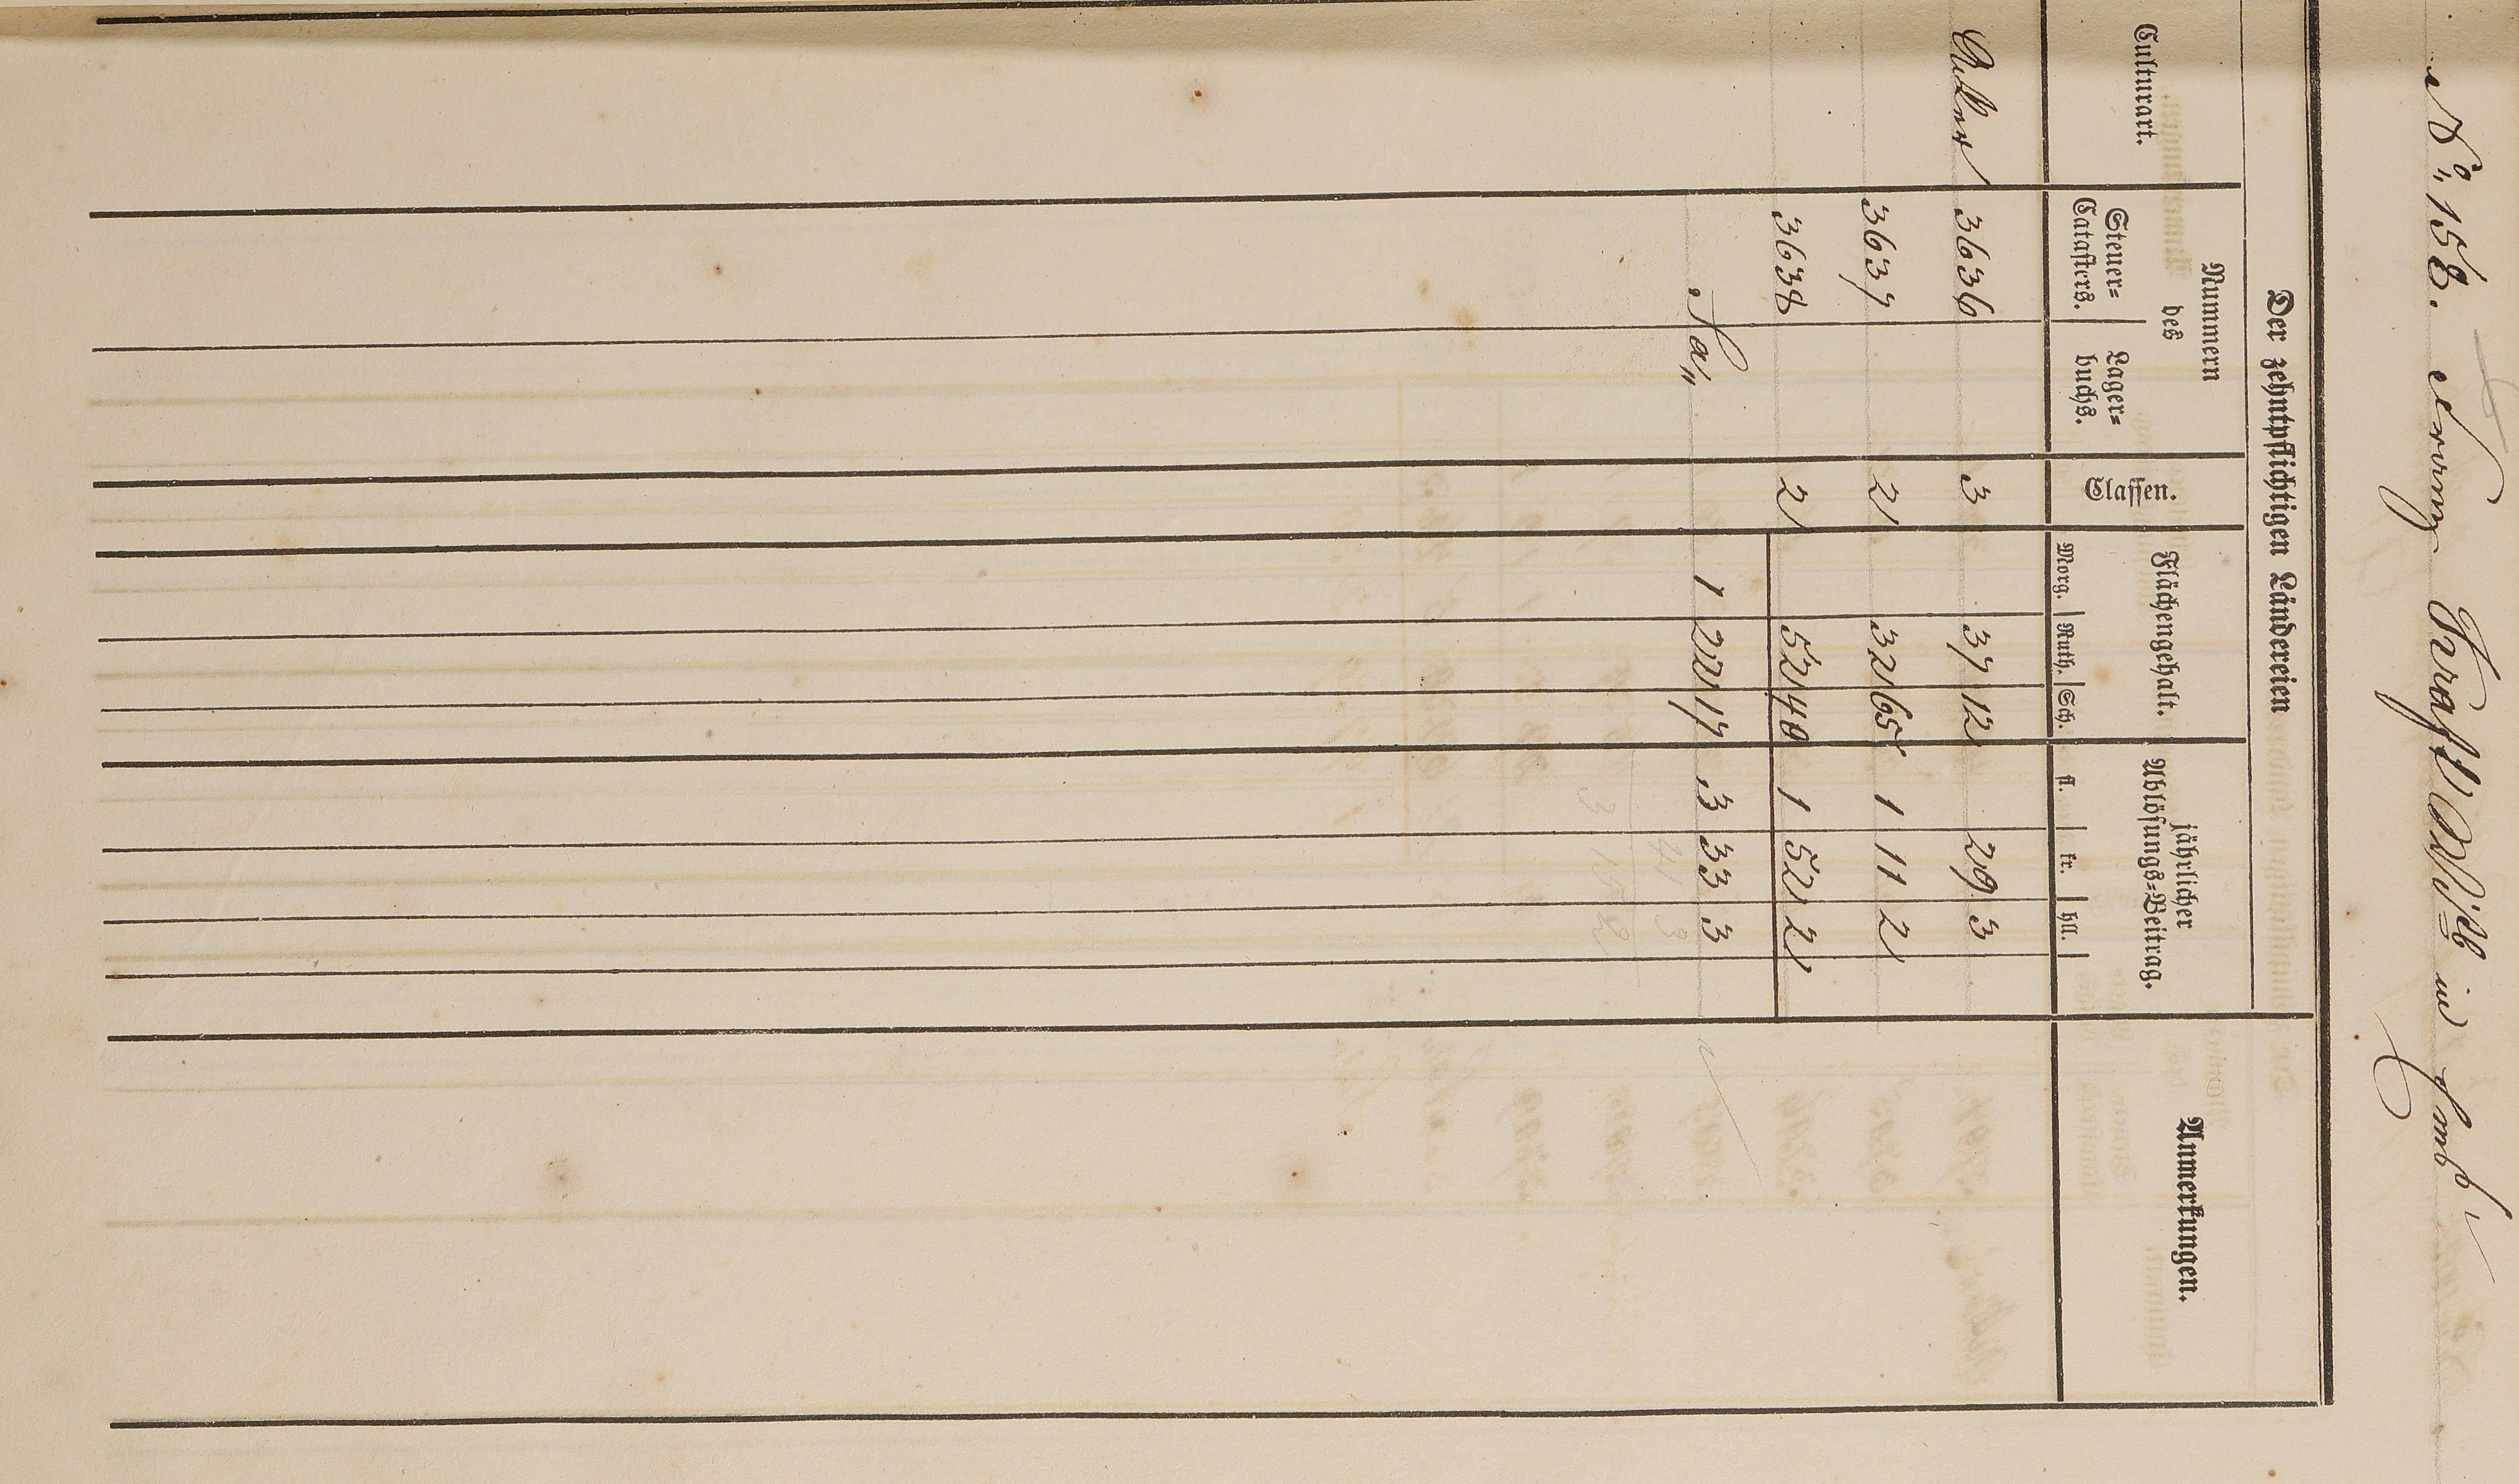 No. 158. Franz Kraft Wwe. in
Der zehntpflichtigen Ländereien
Nummern des
jährlicher
Culturart. Steuer= Catasters. Lager= buchs. Classen. Flächengehalt. Ablösungs=Beitrag. Anmerkungen.
Morg. Ruth. Sch. fl. kr. hll.
Acker 3636 3 37 12 29 3
3637 2 32 65 1 11 2
3638 2 52 40 1 52 2
Sa. 1 22 17 3 33 3
41 3
3 15 2